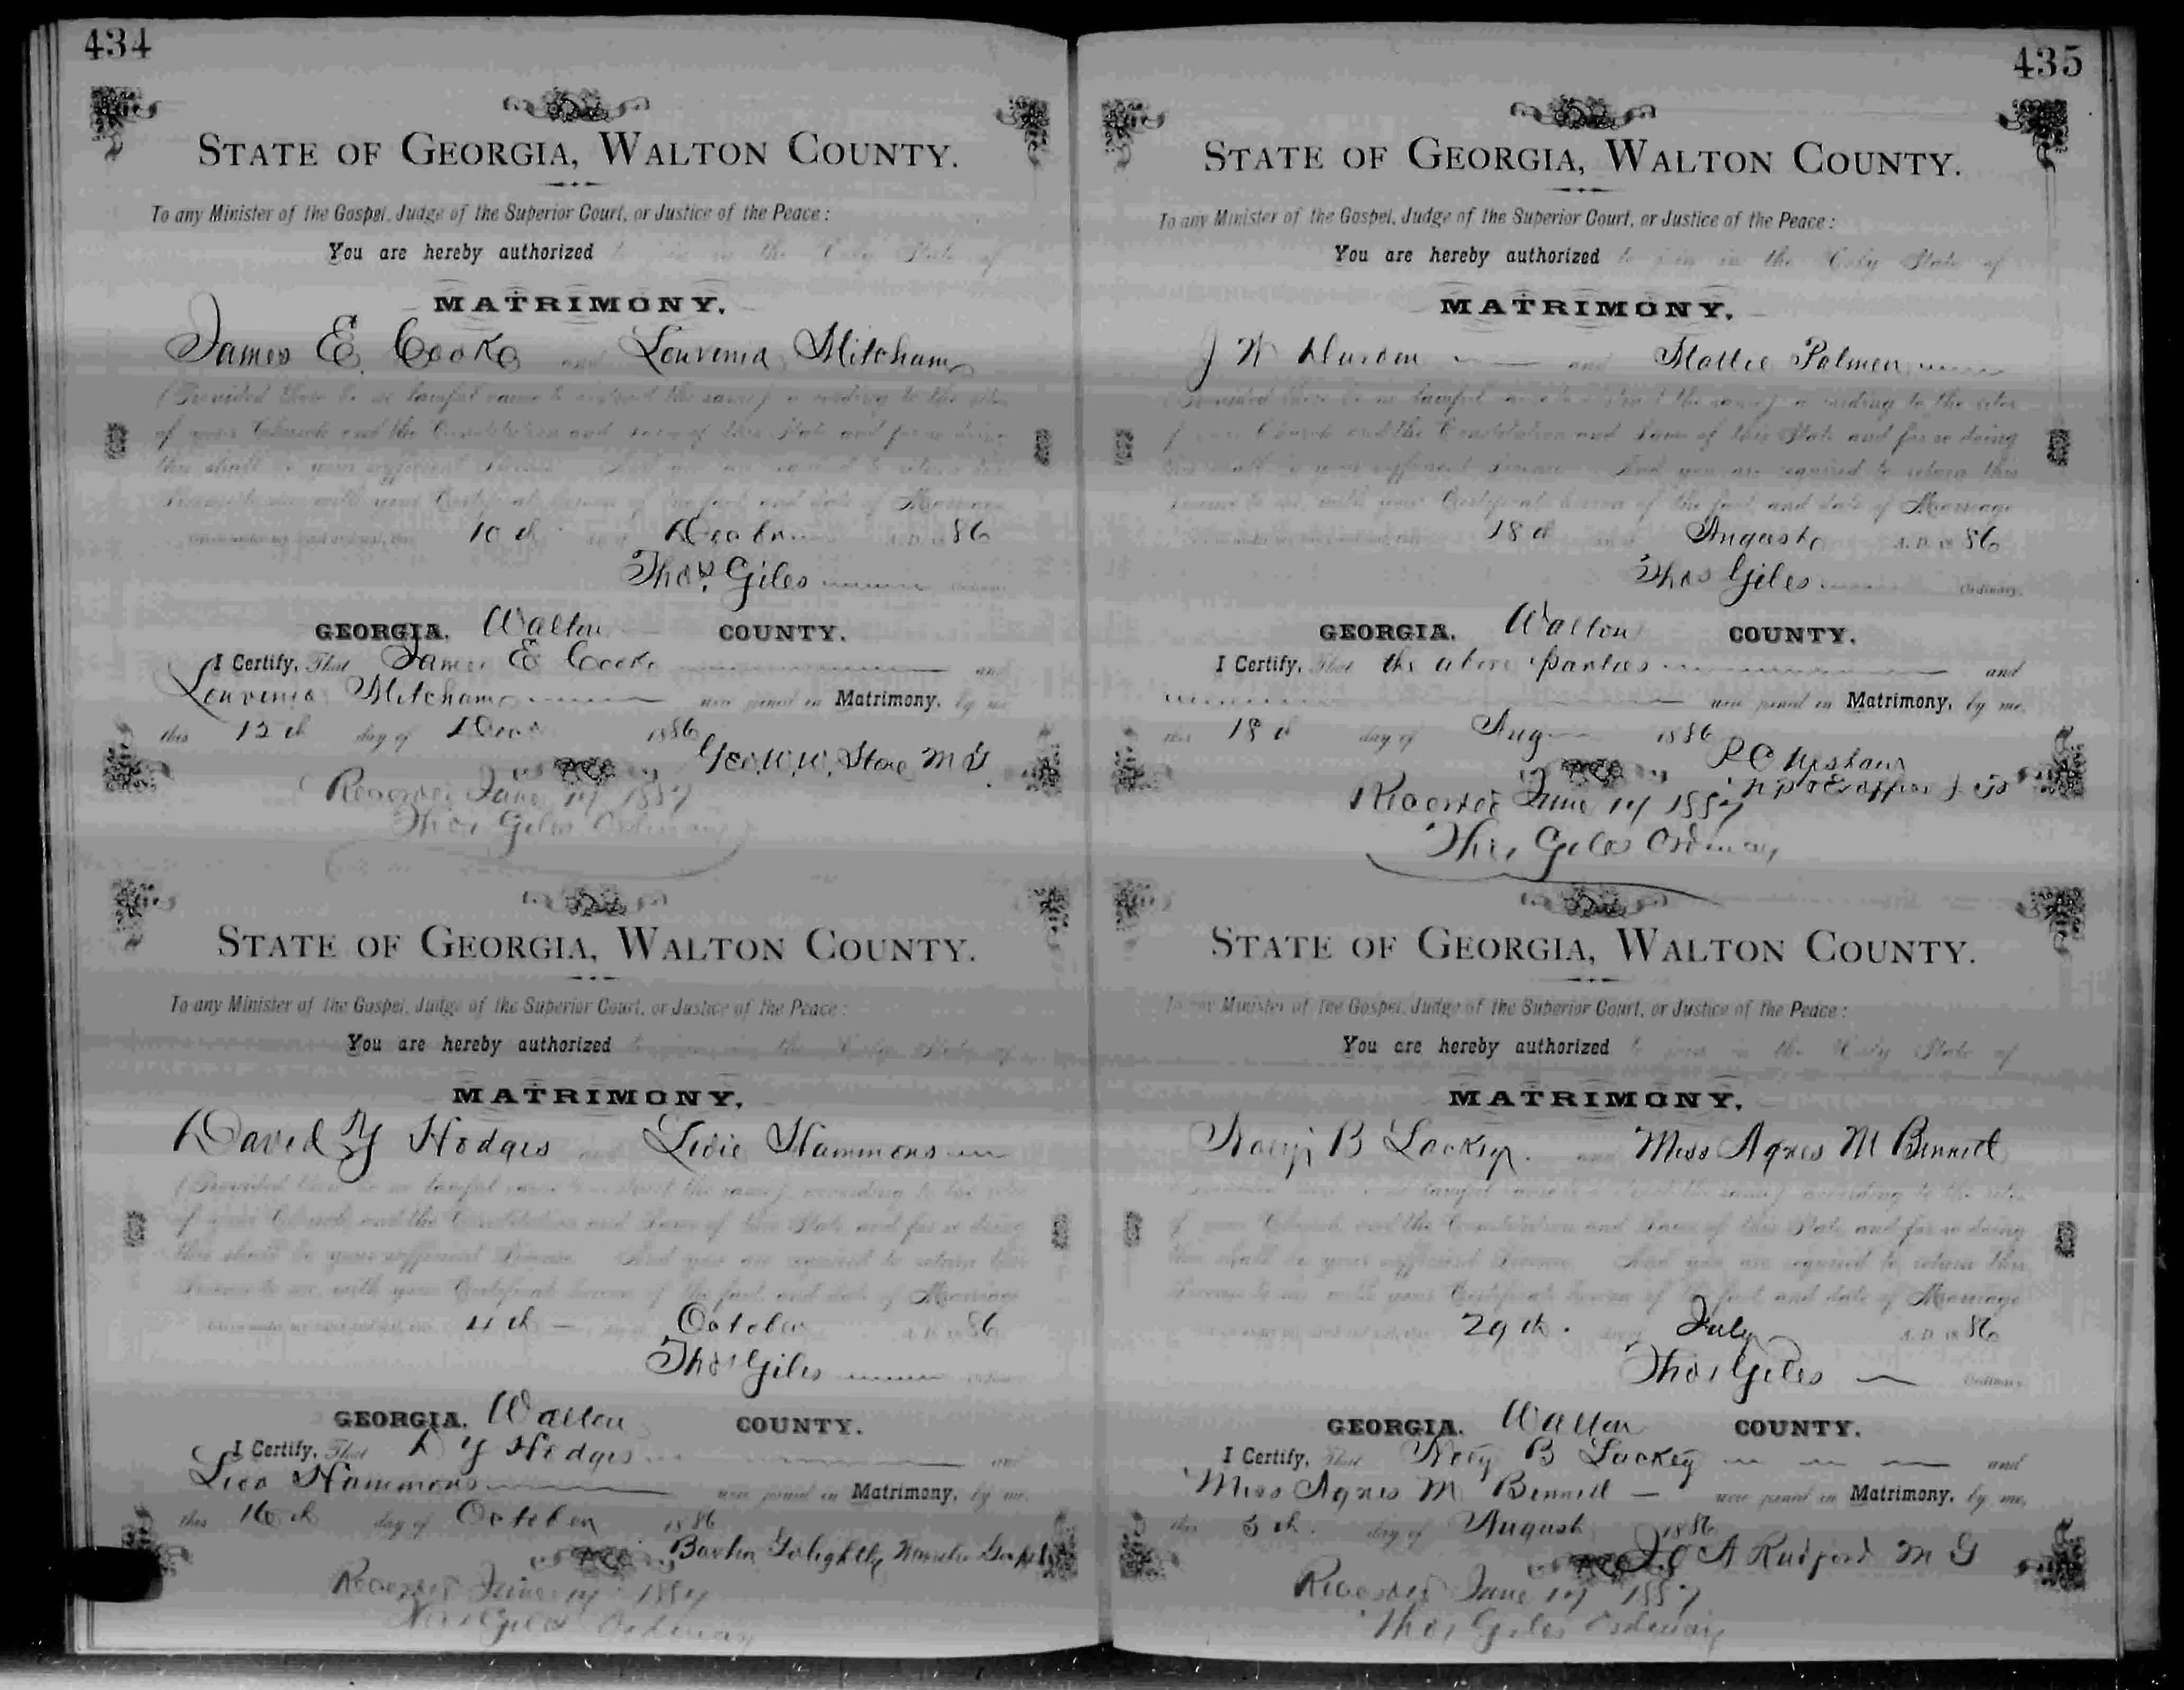 434
STATE OF GEORGIA, WALTON COUNTY.
To any Minister of the Gospel, Judge of the Superior Court, or Justice of the Peace:
You are hereby authorized to join in the Holy State of
MATRIMONY,
James E. Cooke and Louvenia Mitcham
(Provided there be no lawful cause to obstruct the same) according to the rites
of your Church and the Constitution and Laws of this State and for so doing
this shall be your sufficient License. And you are required to return this
License to me with your Certificate hereon of the fact and date of Marriage
10th 86
Thos. Giles
GEORGIA, Walton COUNTY.
I Certify, That James E Cooke and
Louvenia Mitcham were joined in Matrimony, by me
this 12th day of 1886
Geo. W. W. Stone M G
Recorded June 17 1887
Thos Giles Ordinary
STATE OF GEORGIA, WALTON COUNTY.
To any Minister of the Gospel, Judge of the Superior Court, or Justice of the Peace:
You are hereby authorized to join in the Holy State of
MATRIMONY,
David Y Hodges and Hammons
(Provided there be no lawful cause to obstruct the same) according to the rites
of your Church and the Constitution and Laws of this State and for so doing
this shall be your sufficient License. And you are required to return this
License to me with your Certificate hereon of the fact and date of Marriage
4th October 86
Thos Giles
GEORGIA, Walton COUNTY.
I Certify, That D Y Hodges and
Hammons were joined in Matrimony, by me
this 16th day of October 1886
Golightly Minister Gospel
Recorded June 17 1887
Thos Giles Ordinary
435
STATE OF GEORGIA, WALTON COUNTY.
To any Minister of the Gospel, Judge of the Superior Court, or Justice of the Peace:
You are hereby authorized to join in the Holy State of
MATRIMONY,
J W and Mollie Palmer
(Provided there be no lawful cause to obstruct the same) according to the rites
of your Church and the Constitution and Laws of this State and for so doing
this shall be your sufficient License. And you are required to return this
License to me with your Certificate hereon of the fact and date of Marriage
18th August A. D. 1886
Thos Giles Ordinary.
GEORGIA, Walton COUNTY.
I Certify, That the above parties and
were joined in Matrimony, by me,
this 18th day of Aug 1886
Recorded June 17 1887
Thos Giles Ordinary
STATE OF GEORGIA, WALTON COUNTY.
To any Minister of the Gospel, Judge of the Superior Court, or Justice of the Peace:
You are hereby authorized to join in the Holy State of
MATRIMONY,
B Lackey and Miss Agnes M Bennett
(Provided there be no lawful cause to obstruct the same) according to the rites
of your Church and the Constitution and Laws of this State and for so doing
this shall be your sufficient License. And you are required to return this
License to me with your Certificate hereon of the fact and date of Marriage
29th July A. D. 1886
Thos Giles Ordinary
GEORGIA, Walton COUNTY.
I Certify, That B Lackey and
Miss Agnes M Bennett were joined in Matrimony, by me,
this 5th day of August 1886
M G
Recorded June 17 1887
Thos Giles Ordinary